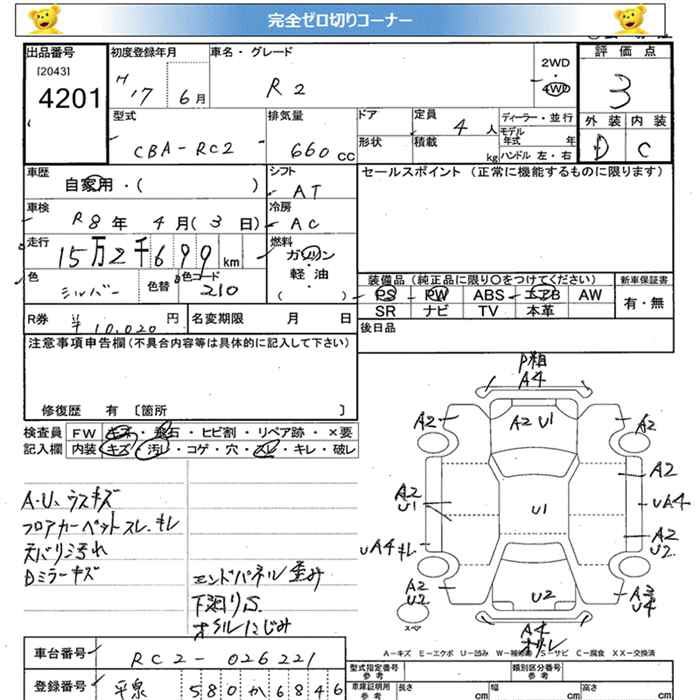 完全ゼロ切りコーナー
出品番号 初度登録年月 車名・グレード 2WD 評価点
[2043] 4201 H17 6月 R2 4WD 3
型式 排気量 ドア 定員 4人 ディーラー・並行 外装 内装
CBA-RC2 660cc 形状 積載 kg モデル年式 年 D C
ハンドル 左・右
車歴 自家用・( ) シフト AT セールスポイント (正常に機能するものに限ります)
車検 R8年 4月(3日) 冷房 AC
走行 15万2千699km 燃料 ガソリン・軽油
( )
色 シルバー 色替 色コード 210 装備品 (純正品に限り○をつけてください) 新車保証書
PS PW ABS エアB AW 有・無
R券 ¥10,020円 名変期限 月 日 SR ナビ TV 本革
注意事項申告欄(不具合内容等は具体的に記入して下さい) 後日品
修復歴 有 〔箇所 〕
検査員 FW キズ・飛石・ヒビ割・リペア跡・×要
記入欄 内装 キズ・汚レ・コゲ・穴・スレ・キレ・破レ
P粗
A4
A2 A2 U1 A2
A2 U1 U1 A2 UA4
UA4キレ A2 U2
A2 U2 U2 A3 U4
スペア A4
A・U、ウスキズ
フロアカーペットスレ、キレ
天バリ汚れ
Dミラーキズ
エンドパネル歪み
下廻りS、
オイルにじみ
A-キズ E-エクボ U-凹み W-補修跡 S-サビ C-腐食 XX-交換済
車台番号 RC2-026221 型式指定番号 参考 類別区分番号 参考
登録番号 平泉 580 か 6846 車庫証明用 参考 長さ cm 幅 cm 高さ cm